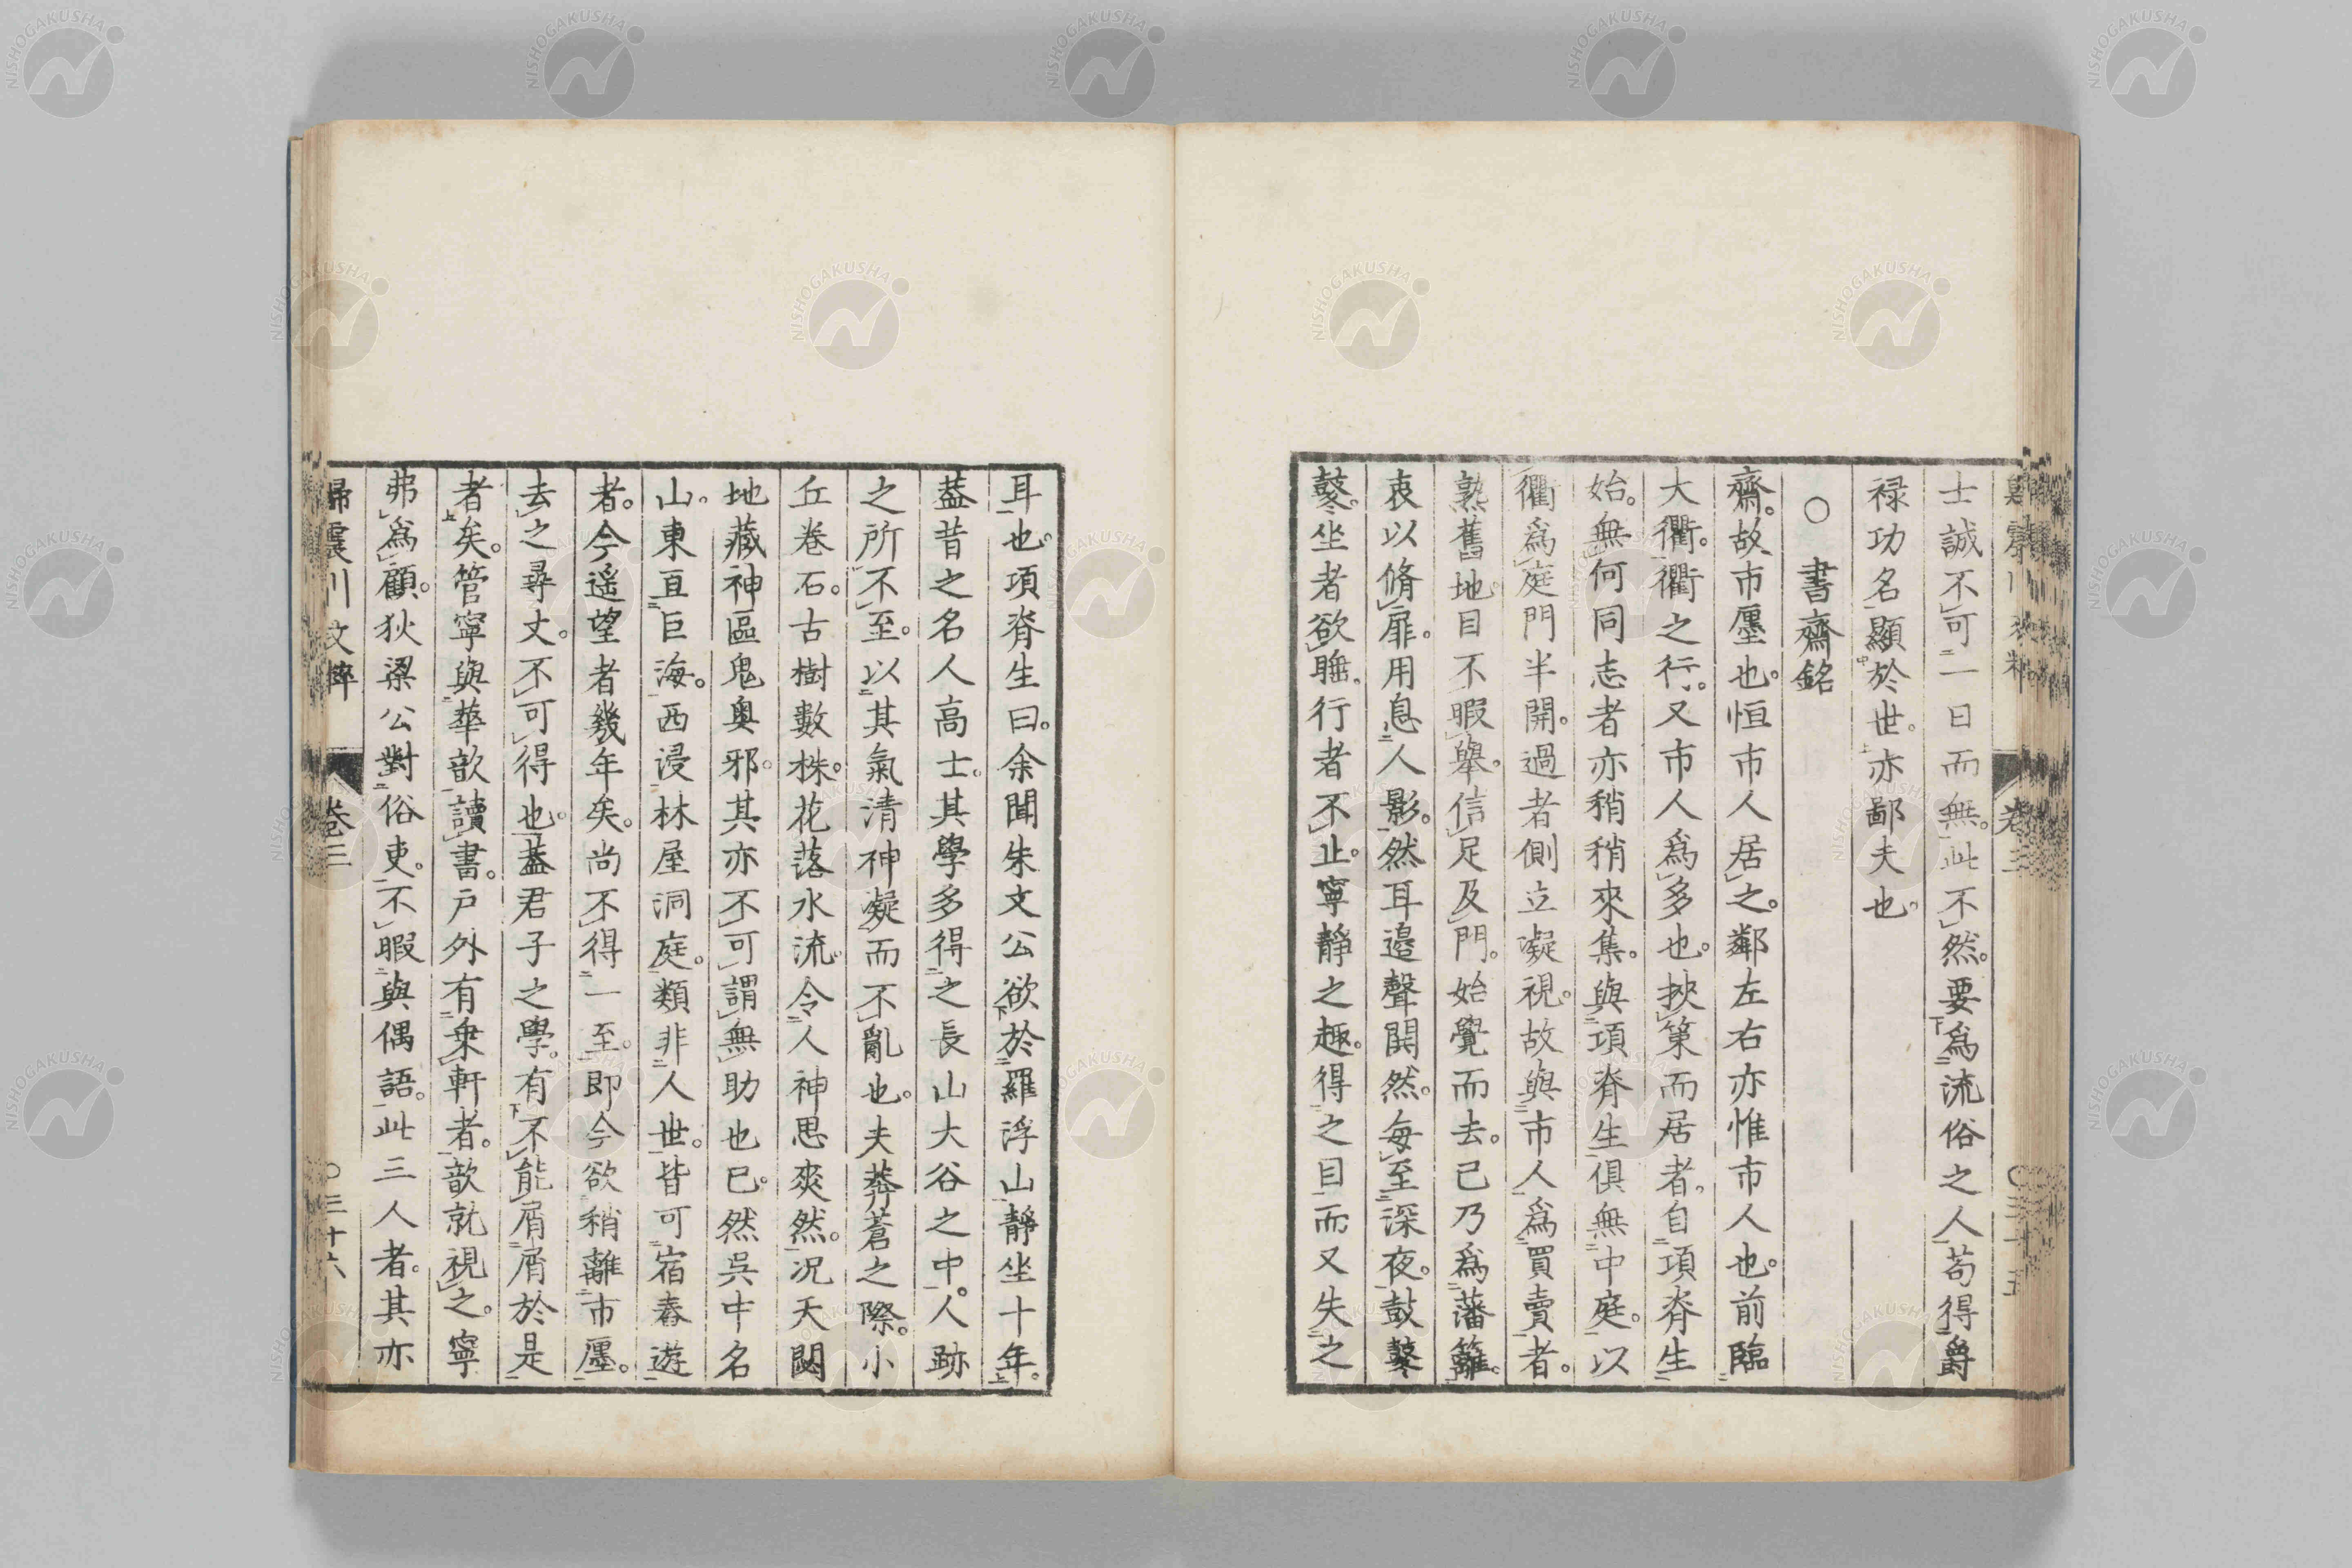 士誠不可一日而無。此不然。要爲流俗之人苟得爵
禄功名顯於世。亦鄙夫也。
○書齋銘
齋。故市廛也。恒市人居之。鄰左右亦惟市人也。前臨
大衢。衢之行。又市人爲多也。挾策而居者。自項脊生
始。無何同志者亦稍稍來集。與項脊生俱無中庭。以
衢爲庭門半開。過者側立凝視。故與市人爲買賣者。
熟舊地。目不暇舉。信足及門。始覺而去。已乃爲藩籬。
衷以脩扉。用息人影。然耳邊聲鬨然。每至深夜。鼓鼕
鼕。坐者欲睡。行者不止。寧靜之趣。得之目而又失之
耳也。項脊生曰。余聞朱文公欲於羅浮山靜坐十年。
蓋昔之名人高士。其學多得之長山大谷之中。人跡
之所不至。以其氣清神凝而不亂也。夫莽蒼之際。小
丘卷石。古樹數株。花落水流。令人神思爽然。况天閟
地藏神區鬼奥邪。其亦不可謂無助也已。然吳中名
山。東亘巨海。西浸林屋洞庭。類非人世。皆可宿舂遊
者。今遥望者幾年矣。尚不得一至。即今欲稍離市廛。
去之尋丈。不可得也。蓋君子之學。有不能屑屑於是
者矣。管寧與華歆讀書。戸外有乗軒者。歆就視之。寧
弗爲顧。狄梁公對俗吏。不暇與偶語。此三人者。其亦
歸震川文粹 卷三 ○三十六